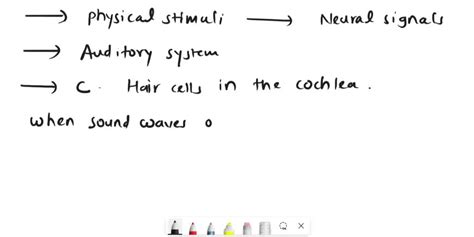 → Physical stimuli → Neural signals
→ Auditory system
→ C. Hair cells in the cochlea.
when sound waves o